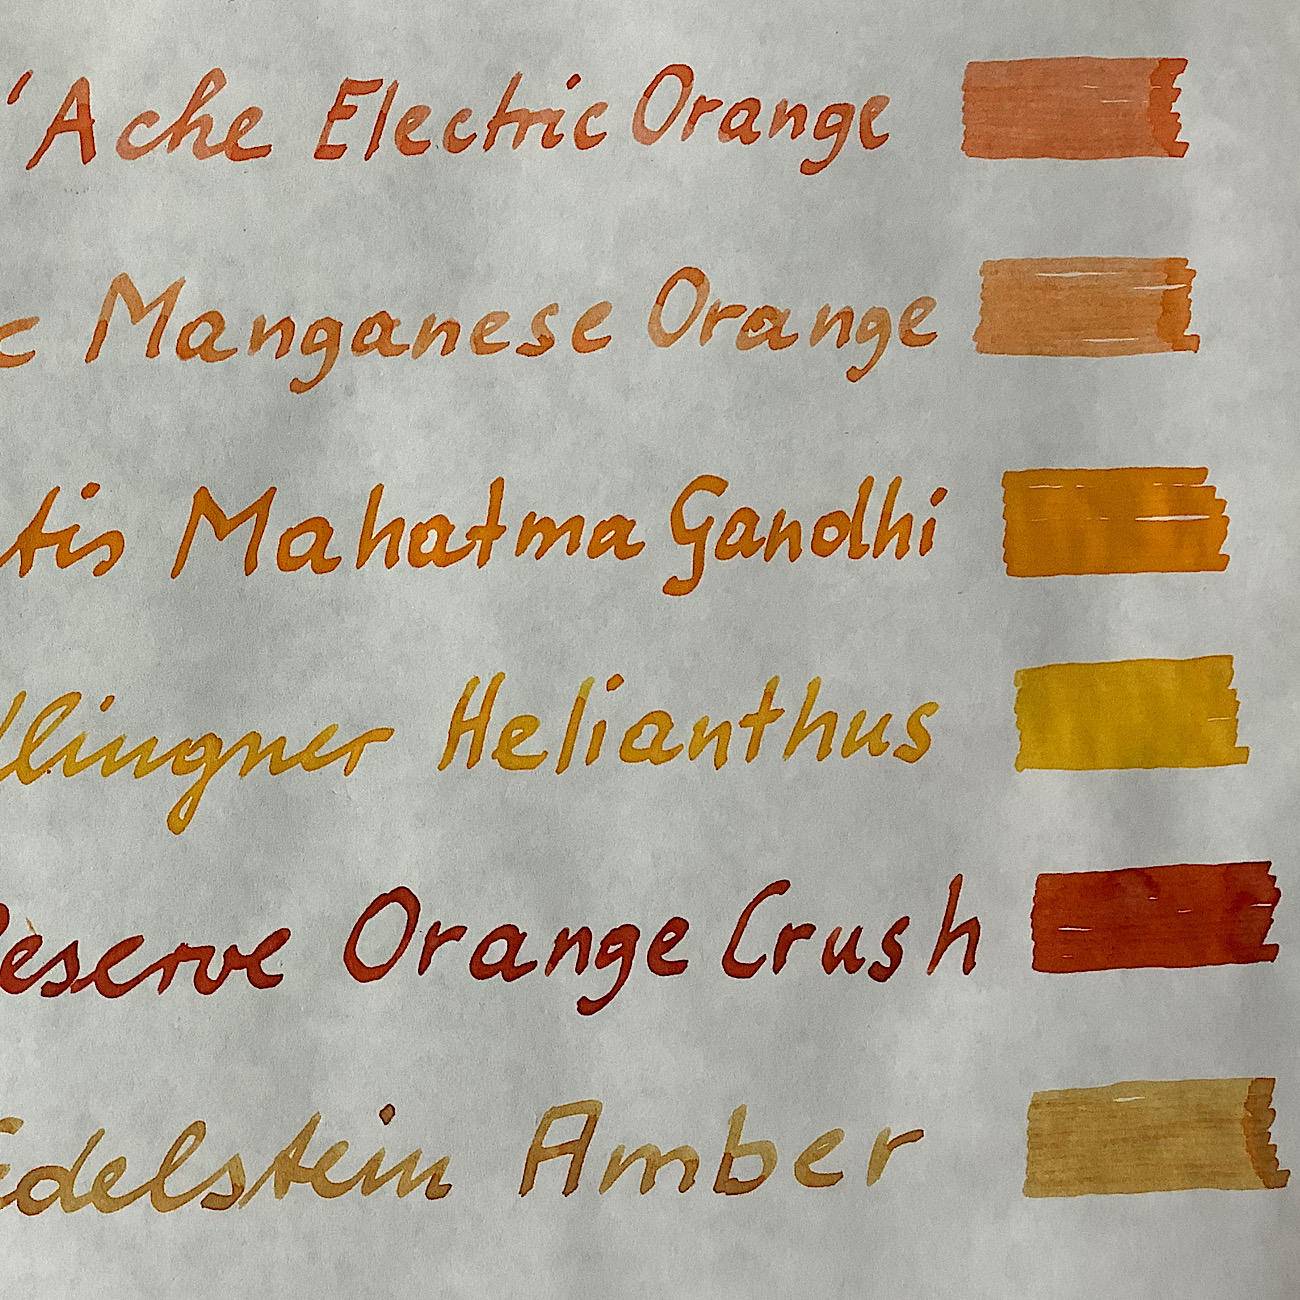 'Ache Electric Orange
c Manganese Orange
tis Mahatma Gandhi
lingner Helianthus
Reserve Orange Crush
Edelstein Amber